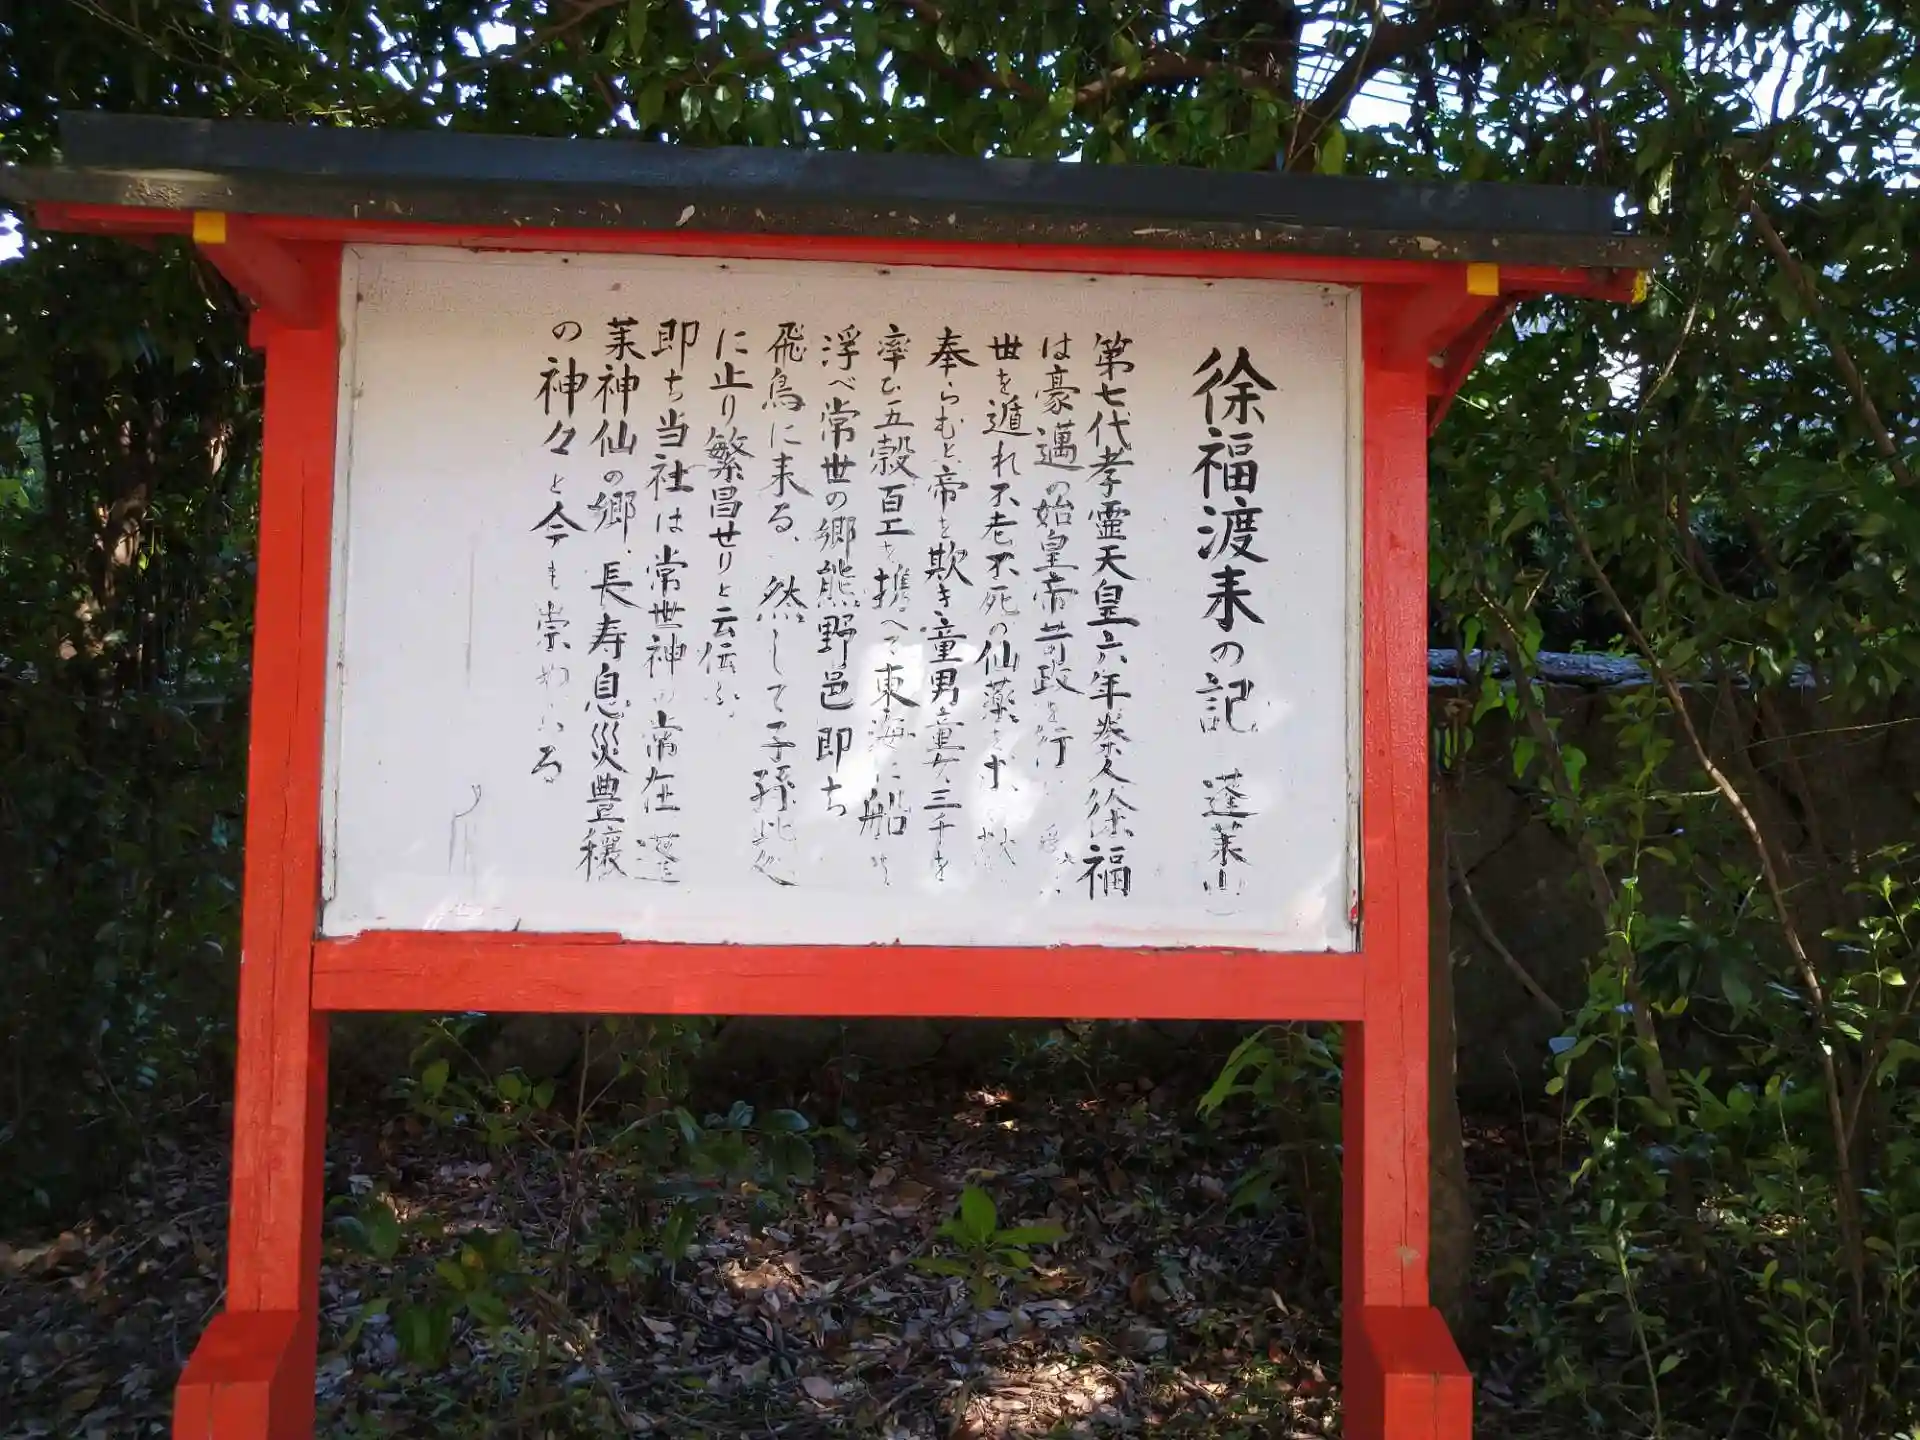 徐福渡来の記 蓬莱山
第七代孝霊天皇六年秦人徐福
は豪邁の始皇帝苛政を行
世を遁れ不老不死の仙薬を
奉らむと帝を欺き童男童女三千を
率ひ五穀百工を携へて東海に船を
浮べ常世の郷熊野邑即ち
飛鳥に来る、然して子孫此処
に止り繁昌せりと云伝ふ。
即ち当社は常世神の常在 蓬
莱神仙の郷、長寿息災豊穣
の神々と今も崇めらる